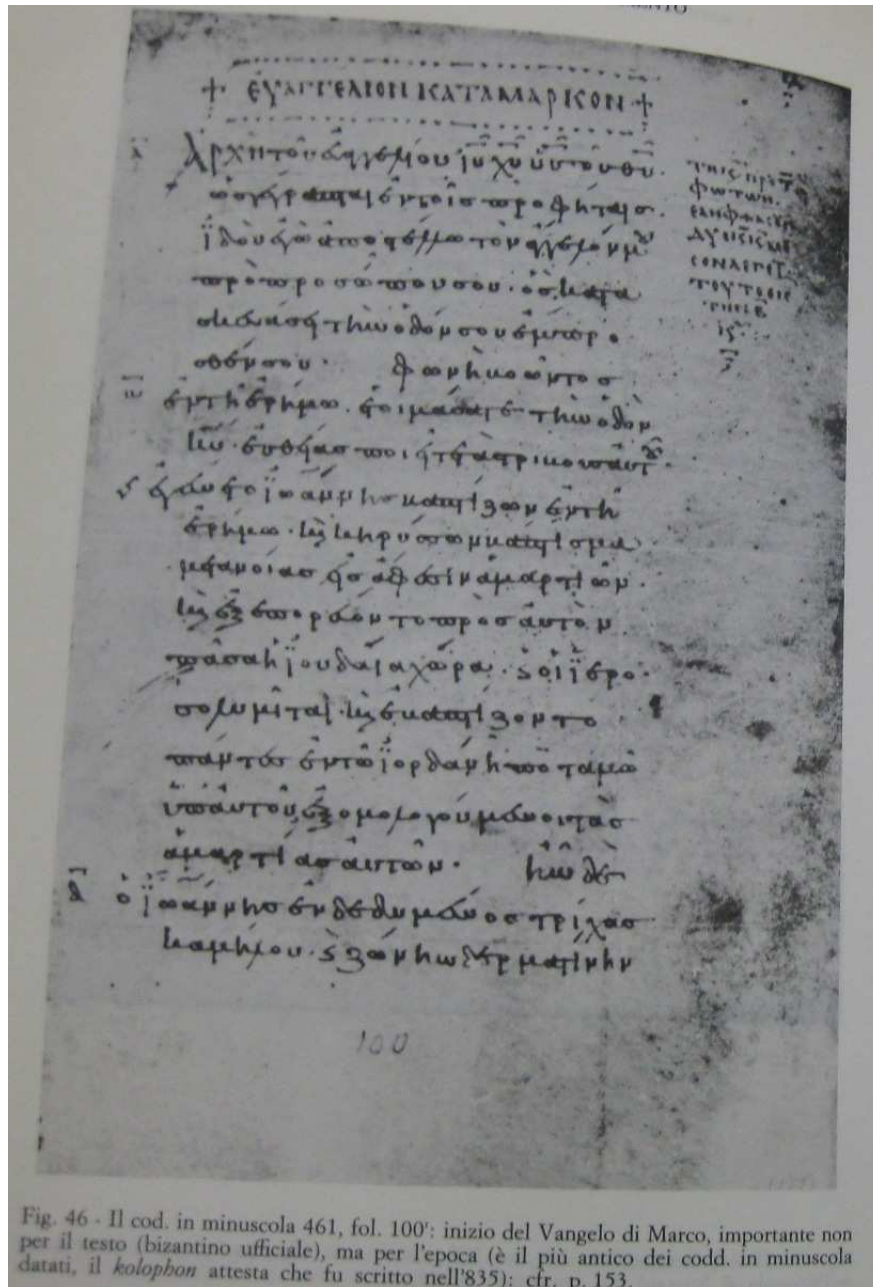 + ΕΥΑΓΓΕΛΙΟΝ ΚΑΤΑ ΜΑΡΚΟΝ +
Ἀρχὴ τοῦ εὐαγγελίου ῑῡ χ̄ῡ ῡῡ τοῦ θ̄ῡ·
ὡς γέγραπται ἐν τοῖς προφήταις·
ϊδοὺ ἐγὼ ἀποστέλλω τὸν ἄγγελόν μου
πρὸ προσώπου σου· ὃς κατα
σκευάσει τὴν ὁδόν σου ἔμπρο
σθέν σου· φωνὴ βοῶντος
ἐν τῆ ἐρήμω· ἑτοιμάσατε τὴν ὁδὸν
κ̄ῡ· εὐθείας ποιεῖτε τὰς τρίβους αὐτοῦ·
ἐγένετο ϊωάννης βαπτίζων ἐν τῆ
ἐρήμω· καὶ κηρύσσων βάπτισμα
μετανοίας εἰς ἄφεσιν ἁμαρτιῶν·
καὶ ἐξεπορεύοντο πρὸς αὐτὸν
πᾶσα ἡ ϊουδαία χώρα· καὶ οἱ ϊερο
σολυμῖται· καὶ ἐβαπτίζοντο
πάντες ἐν τῶ ϊορδάνη ποταμῶ
ὑπ αὐτοῦ ἐξομολογούμενοι τὰς
ἁμαρτίας αὐτῶν· ἦν δὲ
ὁ ϊωάννης ἐνδεδυμένος τρίχας
καμήλου· καὶ ζώνην δερματίνην
100
Fig. 46 - Il cod. in minuscola 461, fol. 100ʳ: inizio del Vangelo di Marco, importante non
per il testo (bizantino ufficiale), ma per l'epoca (è il più antico dei codd. in minuscola
datati, il kolophon attesta che fu scritto nell'835); cfr. p. 153.